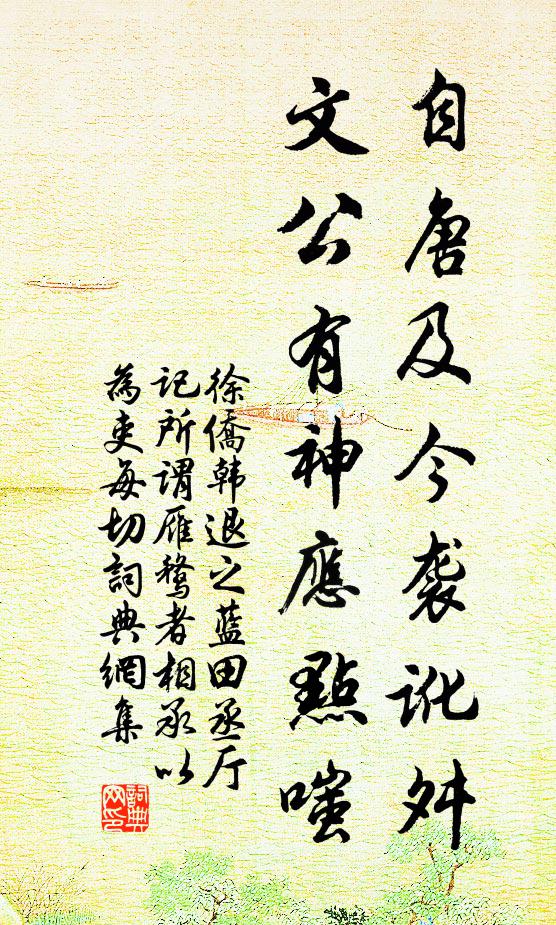 自唐及今袭讹舛
文公有神應點嗤
徐僑韩退之蓝田丞厅
记所谓雁鹜者相承以
為吏每切詞典網集
詞典
网印